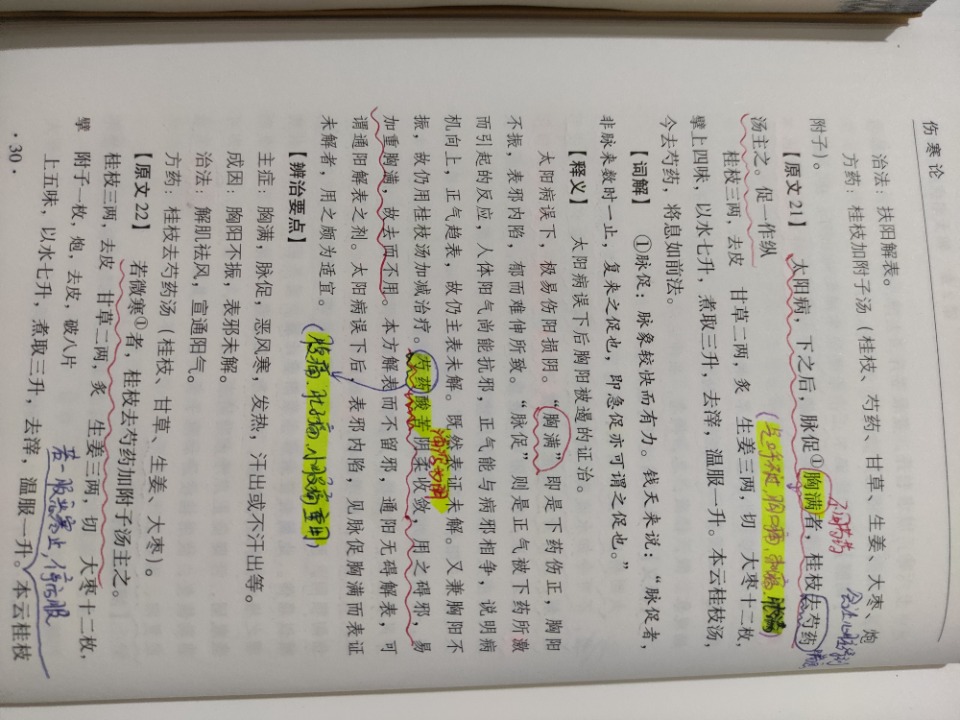 伤寒论
治法：扶阳解表。
方药：桂枝加附子汤（桂枝、芍药、甘草、生姜、大枣、炮
附子）。
【原文 21】 太阳病，下之后，脉促①胸满者，桂枝去芍药
汤主之。促一作纵
桂枝三两，去皮 甘草二两，炙 生姜三两，切 大枣十二枚，
擘上四味，以水七升，煮取三升，去滓，温服一升。本云桂枝汤，
今去芍药，将息如前法。
【词解】 ①脉促：脉象较快而有力。钱天来说：“脉促者，
非脉来数时一止，复来之促也，即急促亦可谓之促也。”
【释义】 太阳病误下后胸阳被遏的证治。
太阳病误下，极易伤阳损阴。“胸满”即是下药伤正，胸阳
不振，表邪内陷，郁而难伸所致。“脉促”则是正气被下药所激
而引起的反应，人体阳气尚能抗邪，正气能与病邪相争，说明病
机向上，正气趋表，故仍主表未解。既然表证未解。又兼胸阳不
振，故仍用桂枝汤加减治疗。芍药酸苦阴柔收敛，用之碍邪，易
加重胸满，故去而不用。本方解表而不留邪，通阳无碍解表，可
谓通阳解表之剂。太阳病误下后，表邪内陷，见脉促胸满而表证
未解者，用之颇为适宜。
【辨治要点】
主症：胸满，脉促，恶风寒，发热，汗出或不汗出等。
成因：胸阳不振，表邪未解。
治法：解肌祛风，宣通阳气。
方药：桂枝去芍药汤（桂枝、甘草、生姜、大枣）。
【原文 22】 若微寒①者，桂枝去芍药加附子汤主之。
桂枝三两，去皮 甘草二两，炙 生姜三两，切 大枣十二枚，
擘 附子一枚，炮，去皮，破八片
上五味，以水七升，煮取三升，去滓，温服一升。本云桂枝
· 30 ·